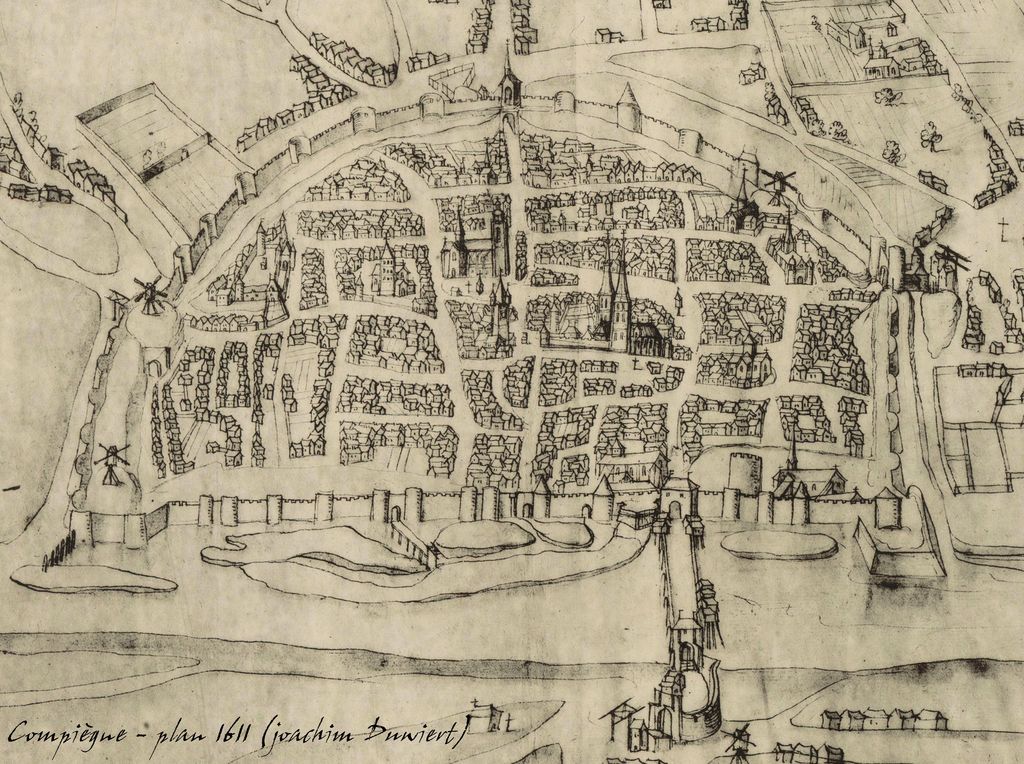 Compiègne - plan 1611 (joachim Duwiert)